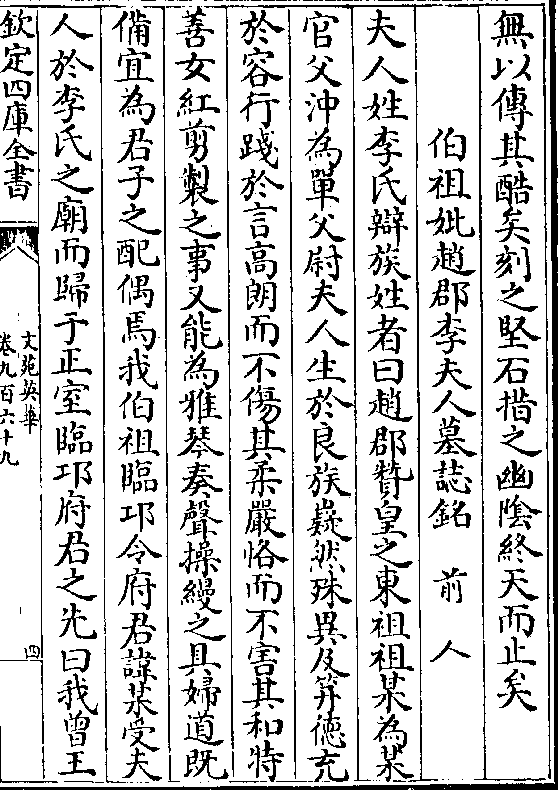 無以傳其酷矣刻之堅石措之幽陰終天而止矣
伯祖妣趙郡李夫人墓誌銘 前人
夫人姓李氏辯族姓者曰趙郡贊皇之東祖祖某為某
官父沖為單父尉夫人生於良族嶷然殊異及笄德充
於容行踐於言高朗而不傷其柔嚴恪而不害其和特
善女紅剪製之事又能為雅琴奏聲操縵之具婦道既
備宜為君子之配偶焉我伯祖臨邛令府君諱某受夫
人於李氏之廟而歸于正室臨邛府君之先曰我曾王
欽定四庫全書
文苑英華
卷九百六十九
四